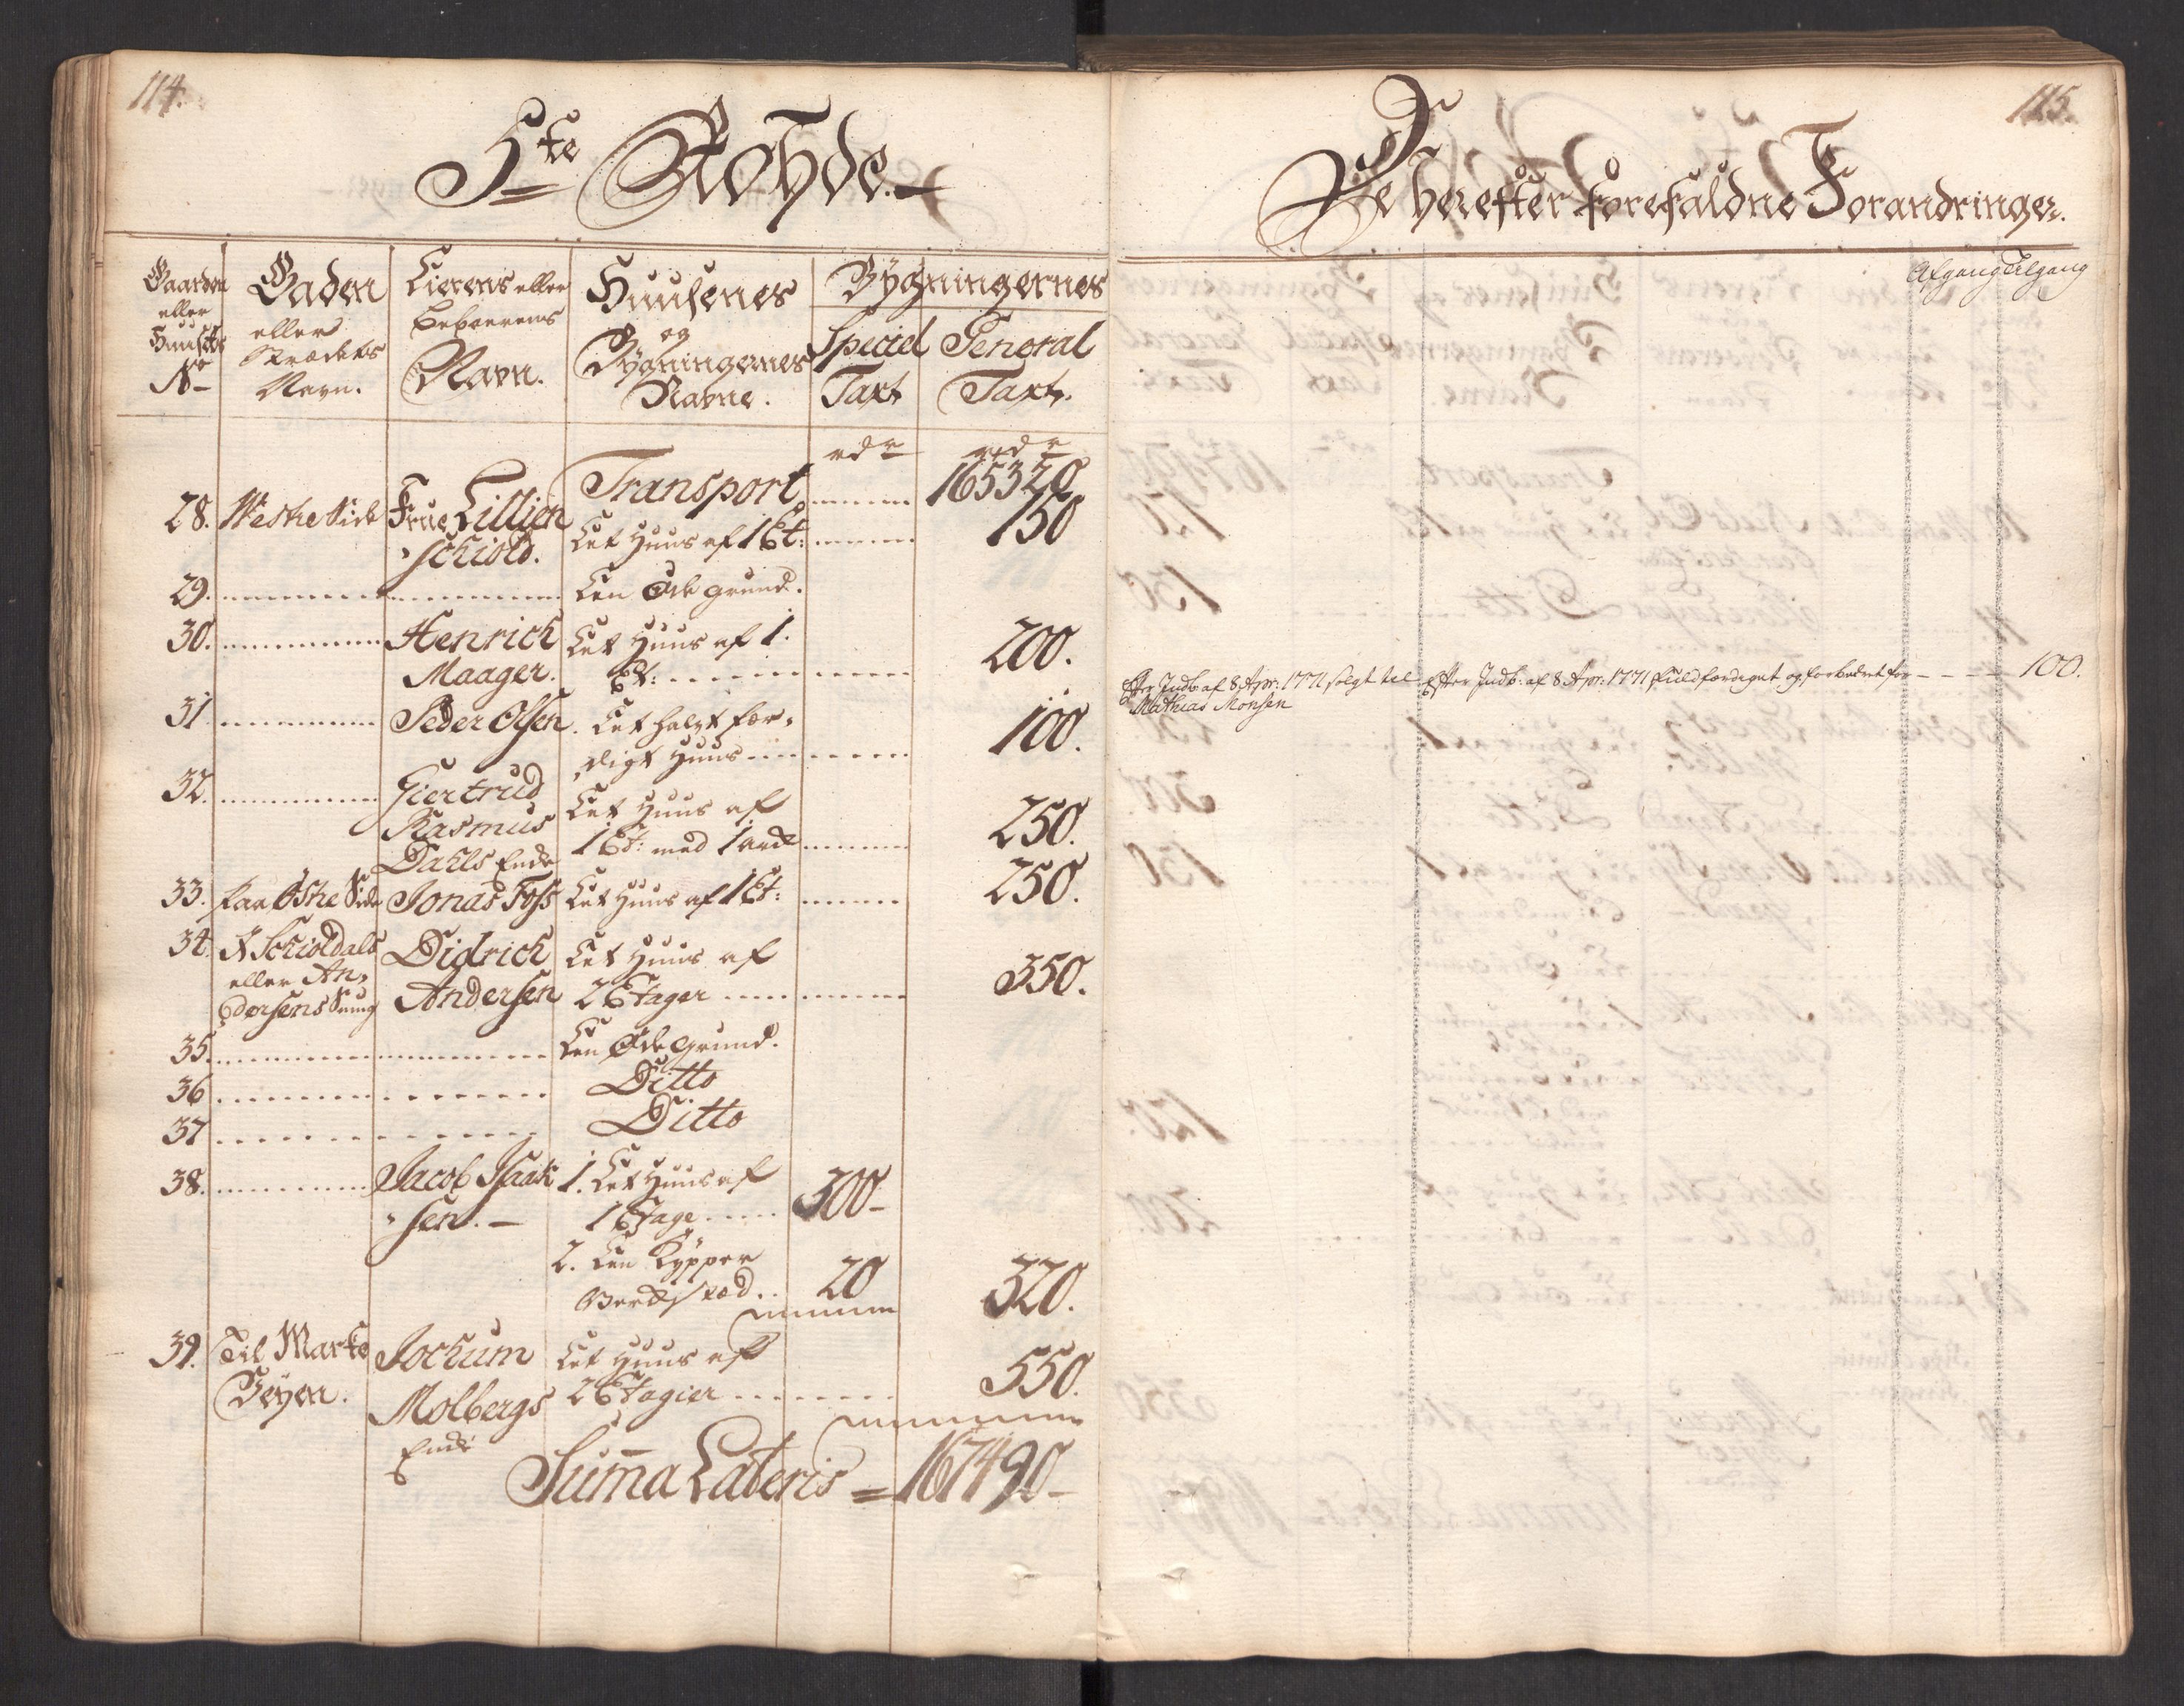 114.
5te Rohde.
Gaarden eller Huusets No
Gaden eller Strædets Navn.
Eierens eller Beboerens Navn.
Huusenes og Bygningernes Navne.
Bygningernes
Speciel Taxt
General Taxt.
rdr rdr
Transport 165320
28. Westre Side Frue Lillien Eet Huus af 1 Et: 150
schiold.
29. Een Øde grund.
30. Henrich Eet Huus af 1.
Maager. Et: 200.
31. Peder Olsen. Eet halvt fær-
digt Huus 100.
32. Giertrud Eet Huus af
Rasmus 1 Et: med 1 ark 250.
Dahls Enke
33. paa Østre Side Jonas Foss Eet Huus af 1 Et: 250.
34. N Schioldals Didrich Eet Huus af
eller An- Andersen 2 Etager 350.
dersens Smug
35. Een Øde Grund.
36 Ditto
37 Ditto
38. Jacob Isaak 1. Eet Huus af
sen. 1 Etage 300
2. Een Kypper
Værksted 20 320.
39. Til Marke Jochum Eet Huus af
Veyen. Molbergs 2 Etagier 550.
Enke
Summa Lateris = 167490
115.
De herefter forefaldne Forandringer.
Afgang Tilgang
Efter Indb: af 8 Apr: 1771 solgt til Efter Indb: af 8 Apr: 1771 fuldfærdiget og forbedret for 100.
Mathias Monsen